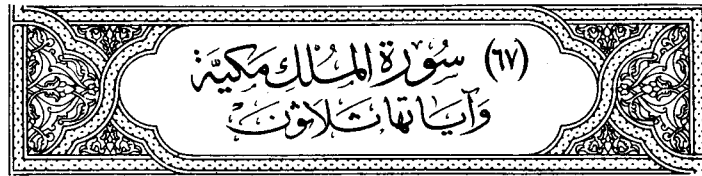 (٦٧) سُورَة المُلْكِ مَكيَّة
وَآيَاتهَا ثَلَاثُونَ